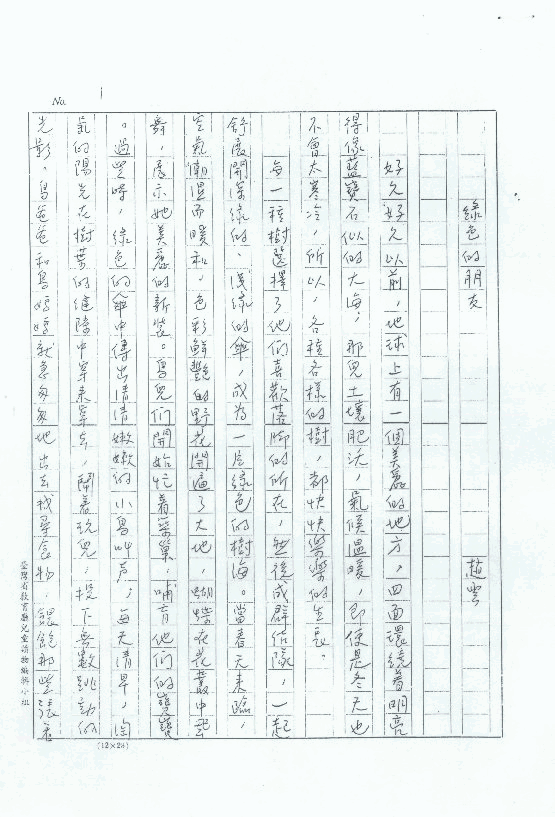 No.
綠色的朋友
趙雲
好久好久以前，地球上有一個美麗的地方，四面環繞着明亮
得像藍寶石似的大海；那兒土壤肥沃，氣候溫暖，即使是冬天也
不會太寒冷，所以，各種各樣的樹，都快快樂樂的生長。
每一種樹選擇了他們喜歡落腳的所在，然後成群結隊，一起
舒展開深綠的、淺綠的傘，成為一片綠色的樹海。當春天來臨，
空氣潮溼而暖和，色彩鮮艷的野花開遍了大地，蝴蝶在花叢中飛
舞，展示她美麗的新裝。鳥兒們開始忙着築巢，哺育他們的寶寶
。過些時，綠色的傘中傳出清清嫩嫩的小鳥叫声，每天清早，淘
氣的陽光在樹葉的縫隙中穿來穿去，鬧着玩兒，投下無數跳動的
光影。鳥爸爸和鳥媽媽就急匆匆地出去找尋食物，餵飽那些張着
臺灣省教育廳兒童讀物編輯小組
(12×28)